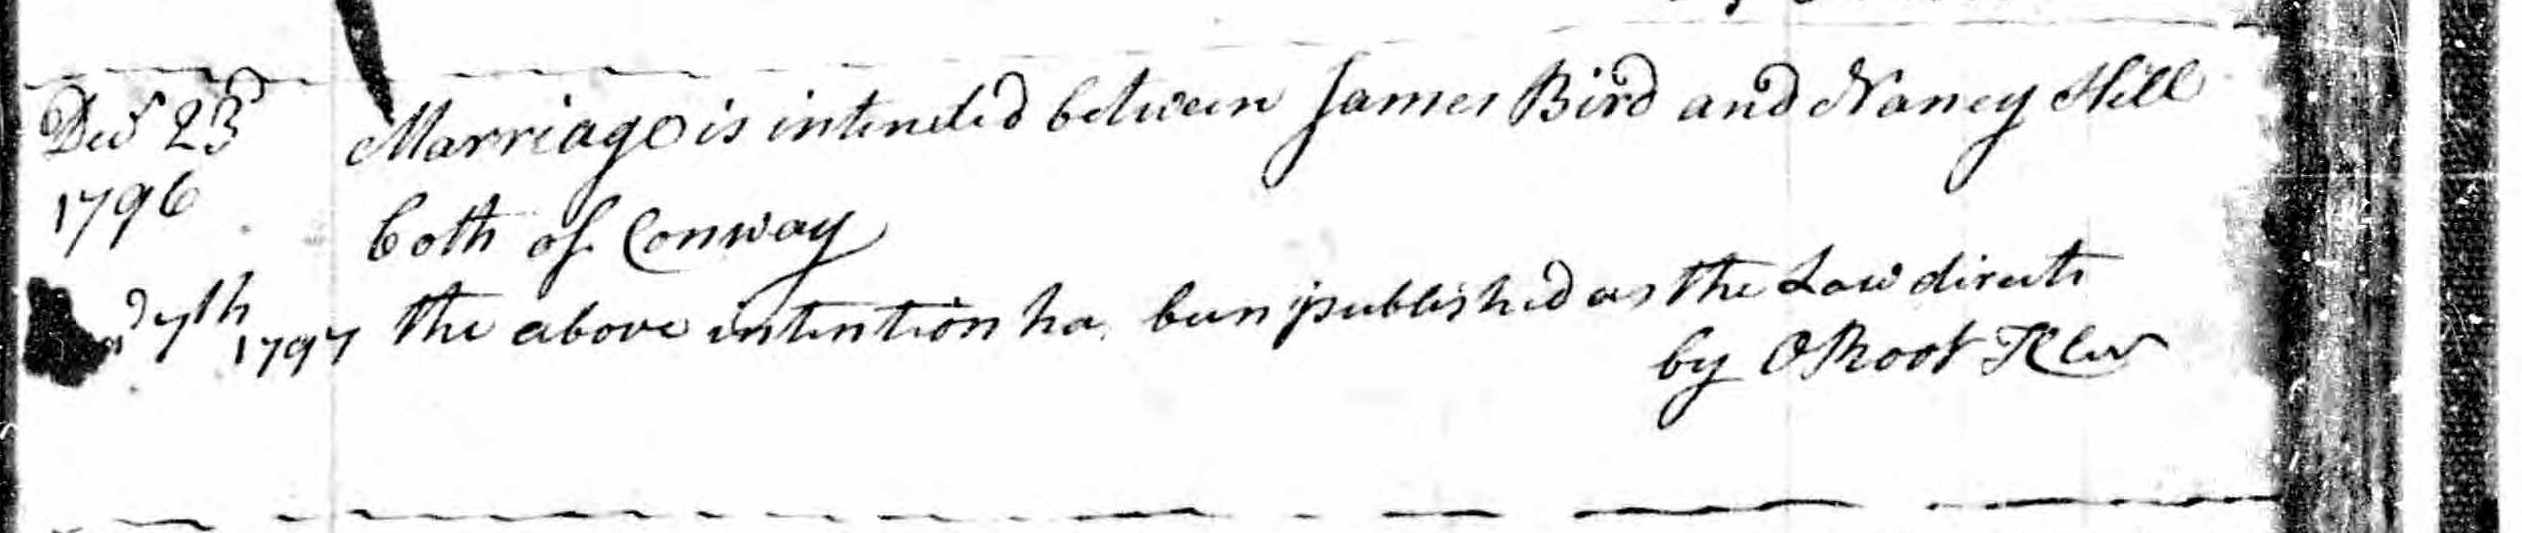 Decr 23d Marriage is intended between James Bird and Nancy Hill
1796 both of Conway
7th 1797 the above intention ha been published as the Law directs
by O Root T Cler